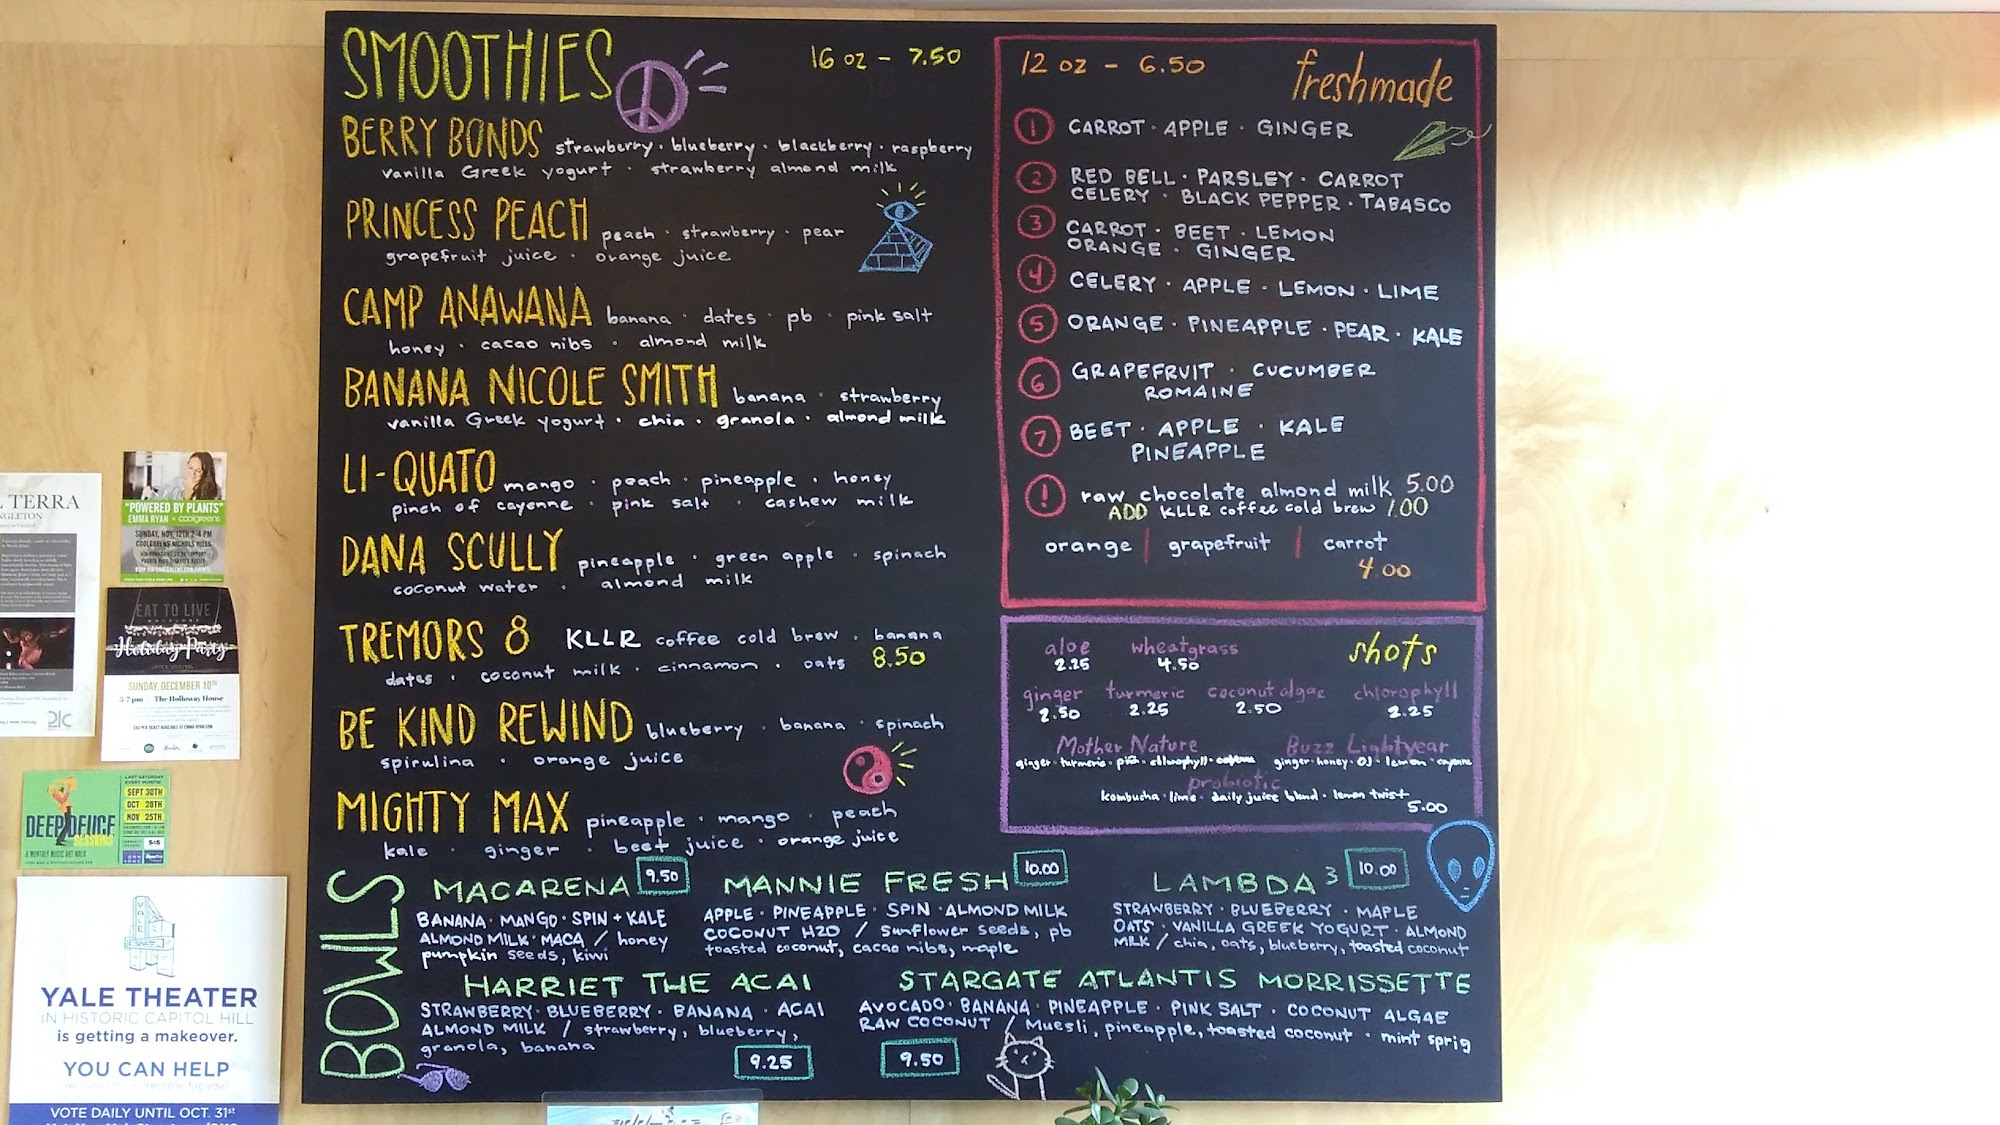 SMOOTHIES
16 oz - 7.50
BERRY BONDS strawberry · blueberry · blackberry · raspberry
vanilla Greek yogurt · strawberry almond milk
PRINCESS PEACH peach · strawberry · pear
grapefruit juice · orange juice
CAMP ANAWANA banana · dates · pb · pink salt
honey · cacao nibs · almond milk
BANANA NICOLE SMITH banana · strawberry
vanilla Greek yogurt · chia · granola · almond milk
LI-QUATO mango · peach · pineapple · honey
pinch of cayenne · pink salt · cashew milk
DANA SCULLY pineapple · green apple · spinach
coconut water · almond milk
TREMORS 8 KLLR coffee cold brew · banana
dates · coconut milk · cinnamon · oats 8.50
BE KIND REWIND blueberry · banana · spinach
spirulina · orange juice
MIGHTY MAX pineapple · mango · peach
kale · ginger · beet juice · orange juice
12 oz - 6.50 freshmade
1 CARROT · APPLE · GINGER
2 RED BELL · PARSLEY · CARROT
CELERY · BLACK PEPPER · TABASCO
3 CARROT · BEET · LEMON
ORANGE · GINGER
4 CELERY · APPLE · LEMON · LIME
5 ORANGE · PINEAPPLE · PEAR · KALE
6 GRAPEFRUIT · CUCUMBER
ROMAINE
7 BEET · APPLE · KALE
PINEAPPLE
! raw chocolate almond milk 5.00
ADD KLLR coffee cold brew 1.00
orange | grapefruit | carrot
4.00
aloe wheatgrass shots
2.25 4.50
ginger turmeric coconut algae chlorophyll
2.50 2.25 2.50 2.25
Mother Nature Buzz Lightyear
ginger · turmeric · chlorophyll · cayenne ginger · honey · OJ · lemon · cayenne
probiotic
kombucha · lime · daily juice blend · lemon twist
5.00
BOWLS
MACARENA 9.50
BANANA · MANGO · SPIN + KALE
ALMOND MILK · MACA / honey
pumpkin seeds, kiwi
MANNIE FRESH 10.00
APPLE · PINEAPPLE · SPIN · ALMOND MILK
COCONUT H2O / sunflower seeds, pb
toasted coconut, cacao nibs, maple
LAMBDA 3 10.00
STRAWBERRY · BLUEBERRY · MAPLE
OATS · VANILLA GREEK YOGURT · ALMOND
MILK / chia, oats, blueberry, toasted coconut
HARRIET THE ACAI
STRAWBERRY · BLUEBERRY · BANANA · ACAI
ALMOND MILK / strawberry, blueberry,
granola, banana
9.25
STARGATE ATLANTIS MORRISSETTE
AVOCADO · BANANA · PINEAPPLE · PINK SALT · COCONUT ALGAE
RAW COCONUT / Muesli, pineapple, toasted coconut · mint sprig
9.50
TERRA
"POWERED BY PLANTS"
EMMA RYAN + coolgreens
SUNDAY, NOV. 12TH 2-4 PM
COOLGREENS NICHOLS HILLS
EAT TO LIVE
Holiday Party
SUNDAY, DECEMBER 10TH
5-7 pm The Holloway House
DEEP DEUCE
SESSIONS
A MONTHLY MUSIC ART WALK
LAST SATURDAY
EVERY MONTH
SEPT 30TH
OCT 28TH
NOV 25TH
YALE THEATER
IN HISTORIC CAPITOL HILL
is getting a makeover.
YOU CAN HELP
VOTE DAILY UNTIL OCT. 31st